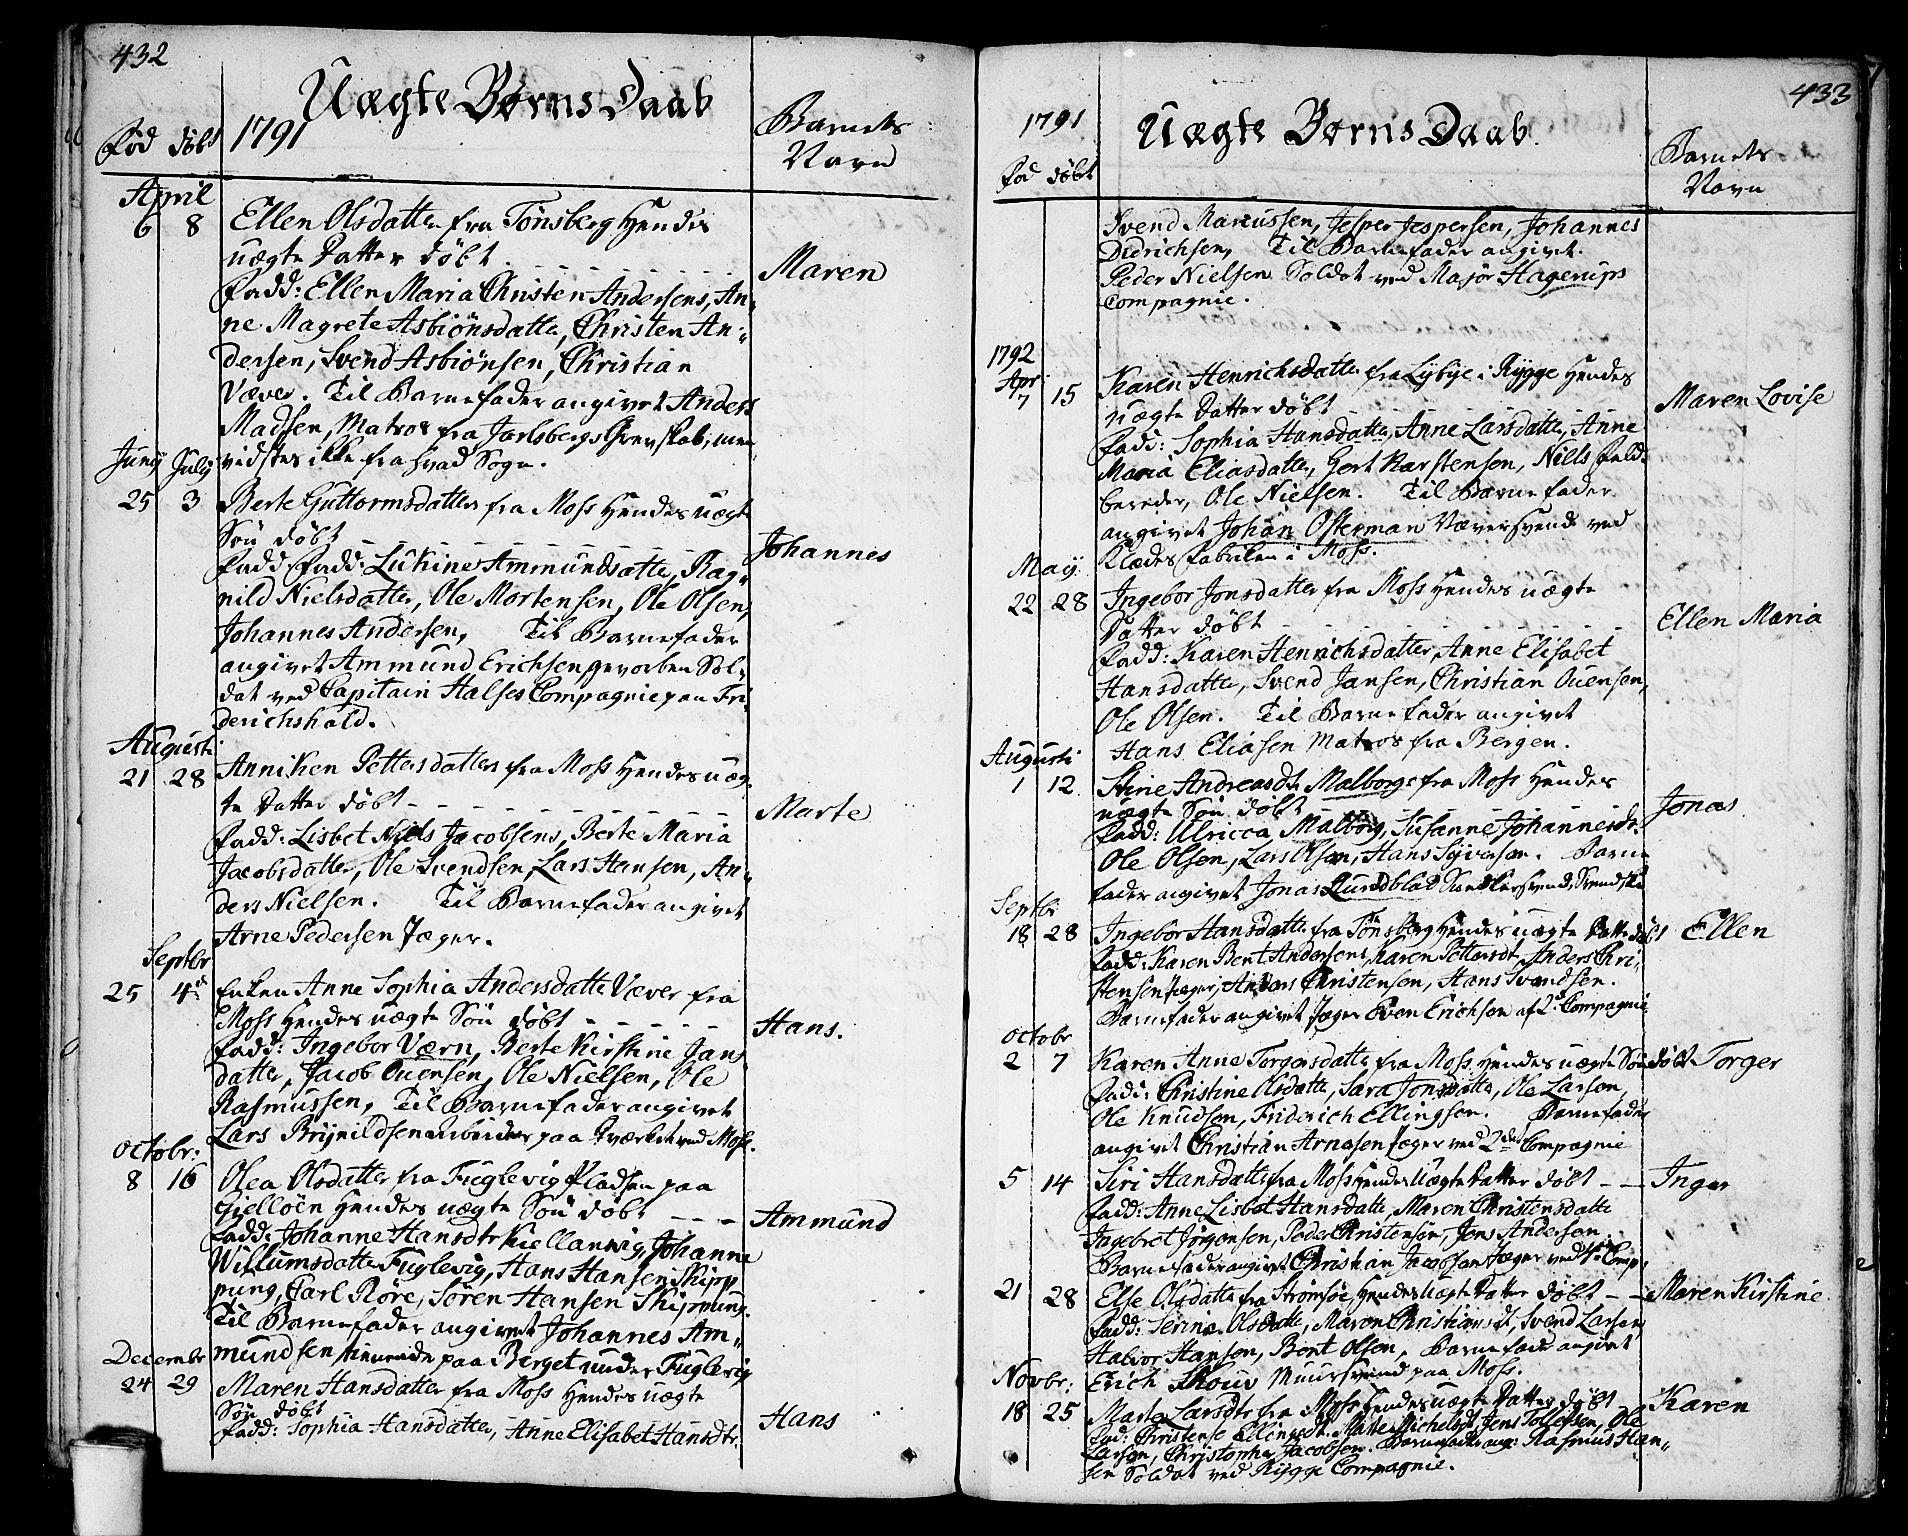 432
Uægte Børns Daab
Fød døbt 1791
Barnets
Navn
April
6 8 Ellen Olsdatter fra Tønsberg Hendes
uægte Datter døbt
Maren
Fadd: Ellen Maria Christen Andersens, An-
ne Magrete Asbiønsdatter, Christen An-
dersen, Svend Asbiønsen, Christian
Væver. Til Barnefader angivet Anders
Madsen, Matros fra Jarlsbergs Grevskab, men
Juny July vidstes ikke fra hvad Sogn.
25 3 Berte Guttormsdatter fra Moss Hendes uægte
Søn døbt
Johannes
Fadd: Fadd: Lukine Ammundsdatter, Rag-
nild Nielsdatter, Ole Mortensen, Ole Olsen,
Johannes Andersen, Til Barnefader
angivet Ammund Erichsen, gevorben Sol-
dat ved Capitain Halses Compagnie paa Fri
derichshald.
Augusti
21 28 Anniken Pettersdatter fra Moss Hendes uæg-
te Datter døbt
Marte
Fadd: Lisbet Niels Jacobsens, Berte Maria
Jacobsdatter, Ole Svendsen, Lars Hansen, An-
ders Nielsen. Til Barnefader angivet
Arne Pedersen Jæger.
Septbr
25 4 Enken Anne Sophia Andersdatter Væver fra
Moss Hendes uægte Søn døbt
Hans.
Fadd: Ingebor Værn, Berte Kirstine Jans
datter, Jacob Ouensen, Ole Nielsen, Ole
Rasmussen, Til Barnefader angivet
Lars Brynildsen arbeider paa Værket ved Moss.
Octobr:
8 16 Olea Olsdatter fra Fuglevig Pladsen paa
Gielløen Hendes uægte Søn døbt
Ammund
Fadd: Johanne Hansdtr Kiellanvig, Johanne
Willumsdatter Fuglevig, Hans Hansen Skipp
pung, Carl Røre, Søren Hansen Skippung.
Til Barnefader angivet Johannes Am-
mundsen, tienende paa Berget under Fuglevig
Decembr
24 29 Maren Hansdatter fra Moss Hendes uægte
Søn døbt
Hans
Fadd: Sophia Hansdatter, Anne Elisabet Hansdtr.
433
1791 Uægte Børns Daab.
Fød døbt
Barnets
Navn
Svend Marcussen, Jesper Jespersen, Johannes
Diderichsen, Til Barnefader angivet.
Peder Nielsen Soldat ved Major Hagerups
Compagnie.
1792
Apr:
7 15 Karen Henrichsdatter fra Lybye i Rygge Hendes
uægte Datter døbt
Maren Lovise
Fadd: Sophia Hansdatter, Anne Larsdatter, Anne
Maria Eliasdatter, Gert Karstensen, Niels Feld-
bereder, Ole Nielsen. Til Barnefader
angivet Johan Osterman Væversvend ved
Klædes Fabriken i Moss.
May
22 28 Ingebor Jonsdatter fra Moss Hendes uægte
Datter døbt
Ellen Maria
Fadd: Karen Henrichsdatter, Anne Elisabet
Hansdatter, Svend Jansen, Christian Ouensen,
Ole Olsen. Til Barnefader angivet
Hans Eliasen Matros fra Bergen.
Augusti
1 12 Stine Andreasdtr Malborg fra Moss Hendes
uægte Søn døbt
Jonas
Fadd: Ulricca Malborg, Susanne Johannesdr.
Ole Olsen, Lars Olsen, Hans Syversen. Barne
fader angivet Jonas Lundblad Snedkersvend, Svendske
Septbr
18 28 Ingebor Hansdatter fra Tønsberg Hendes uægte Datter døbt Ellen
Fadd: Karen Bent Andersens, Karen Pettersdt, Anders Chri-
stensen Jæger, Anders Christensen, Hans Svendsen.
Barnefader angivet Jæger Even Erichsen af 2. Compagnie
Octobr
2 7 Karen Anne Torgersdatter fra Moss, Hendes uægte Søn døbt Torger
Fadd: Christine Olsdatter, Sara Jonsdatter, Ole Larsen,
Ole Knudsen, Friderich Ellingsen. Barnefader
angivet Christian Arnesen Jæger ved 2den Compagnie
5 14 Siri Hansdatter fra Moss Hendes Uægte Datter døbt - - Inger
Fadd: Anne Lisbet Hansdatter, Maren Christensdatter
Ingebret Jørgensen, Peder Christensen, Jens Andersen
Barnefader angivet Christian Jacobsen Jæger ved 4de Comp.
21 28 Else Olsdatter fra Strømsøe Hendes Uægte Datter døbt - - Maren Kirstine.
Fadd: Serine Olsdatter, Maren Christiansdt, Svend Larsen,
Halvor Hansen, Bent Olsen, Barnefader angivet
Erich Skouv Muursvend paa Moss.
Novbr:
18 25 Marte Larsdtr fra Moss Hendes uægte Datter døbt Karen
Fad: Christense Ellensdt. Marte Michelsdt, Jens Tollefsen, Ole
Larsen, Christopher Jacobsen. Barnefader ang: Rasmus Han-
sen Soldat ved Rygge Compagnie.